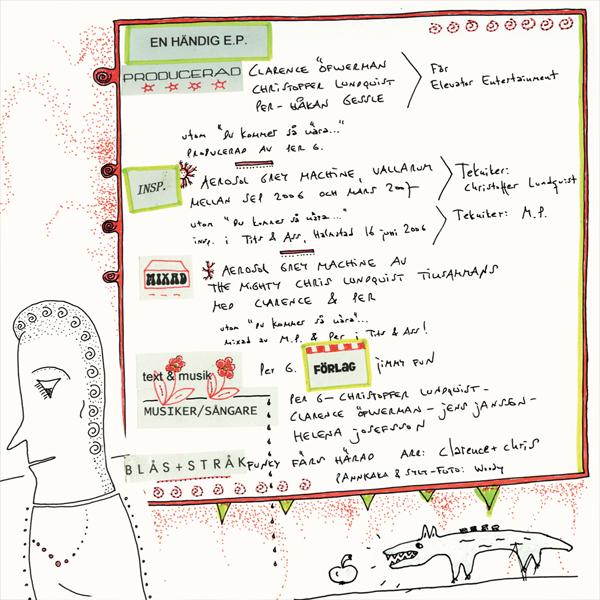 EN HÄNDIG E.P.
PRODUCERAD
CLARENCE ÖFWERMAN
CHRISTOFFER LUNDQUIST
PER-HÅKAN GESSLE
För
Elevator Entertainment
utom "Du kommer så nära..."
PRODUCERAD AV PER G.
INSP.
AEROSOL GREY MACHINE, VALLARUM
MELLAN SEP 2006 OCH MARS 2007
Tekniker:
Christoffer Lundquist
utom "Du kommer så nära..."
insp. i Tits & Ass, Halmstad 16 juni 2006
Tekniker: M.P.
MIXAD
AEROSOL GREY MACHINE AV
THE MIGHTY CHRIS LUNDQUIST TILLSAMMANS
MED CLARENCE & PER
utom "Du kommer så nära"...
mixad av M.P. & Per i Tits & Ass!
text & musik
Per G.
FÖRLAG
JIMMY FUN
MUSIKER/SÅNGARE
PER G – CHRISTOFFER LUNDQUIST –
CLARENCE ÖFWERMAN – JENS JANSSON –
HELENA JOSEFSSON
BLÅS+STRÅK
FUNKY FÄRS HÄRAD ARR: Clarence + Chris
PANNKAKA & SYLT-FOTO: Woody